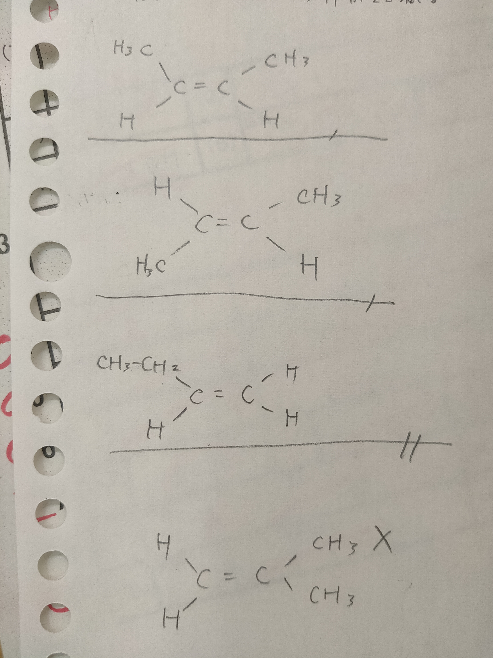 H3C CH3
C = C
H H
H CH3
C = C
H3C H
CH3-CH2 H
C = C
H H
H CH3 X
C = C
H CH3